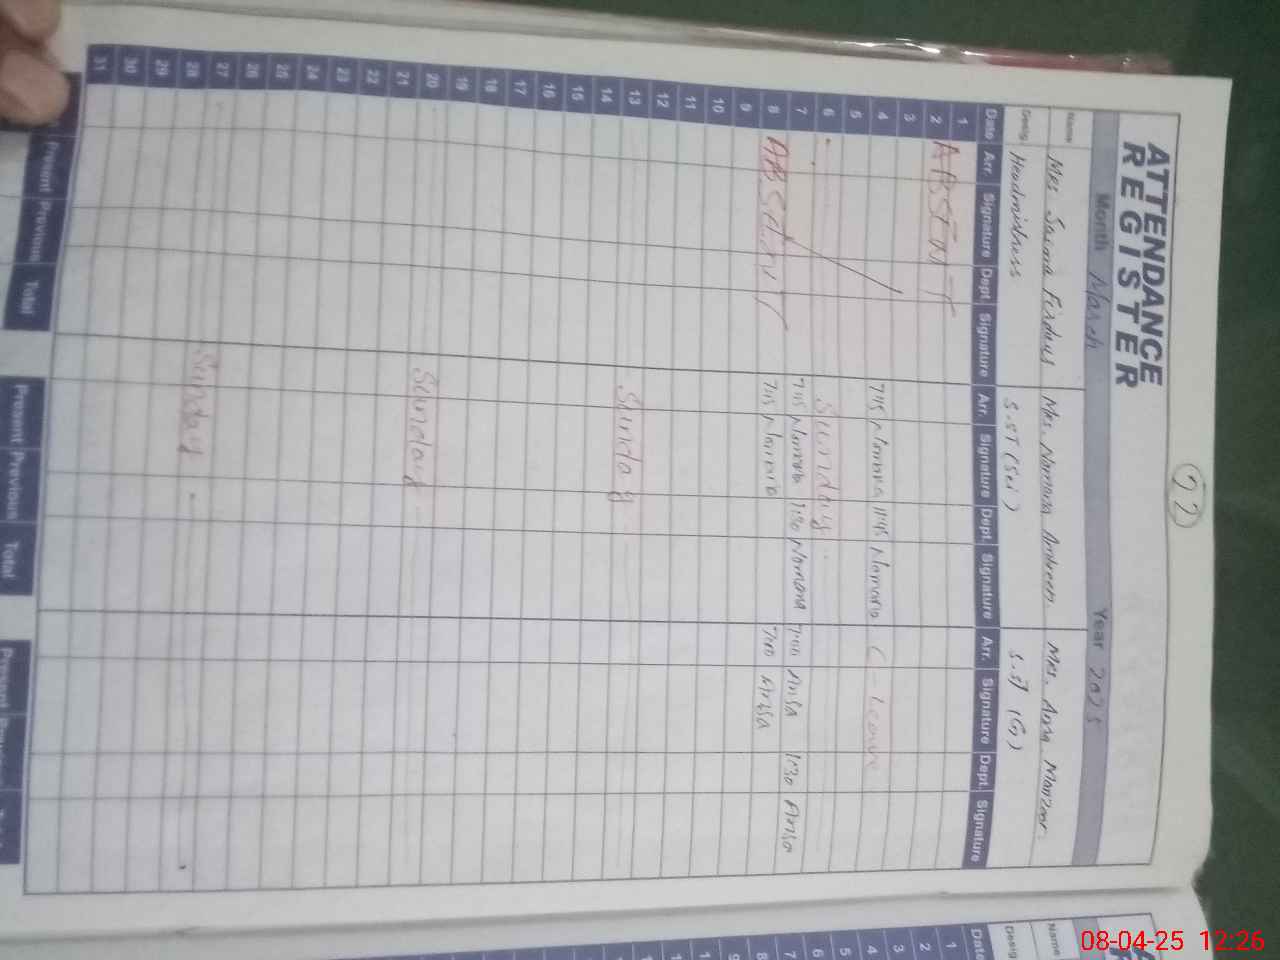 22
ATTENDANCE
REGISTER
Month March Year 2025
Name Mrs. Saima Firdous Mrs. Namana Ambreen. Mrs. Ansa Manzoor.
Desig Headmistress S.ST (Sci) S.ST (G)
Date Arr. Signature Dept. Signature Arr. Signature Dept. Signature Arr. Signature Dept. Signature
1
2 ABSENT
3
4 7:15 Namana 11:45 Namana C-Leave
5
6 Sunday
7 7:15 Namana 1:30 Namana 7:00 Ansa 1:30 Ansa
8 ABSENT 7:15 Namana 7:00 Ansa
9
10
11
12
13 Sunday
14
15
16
17
18
19
20 Sunday
21
22
23
24
25
26
27
28 Sunday
29
30
31
Present Previous Total Present Previous Total Present
Date
Name
Desig
1
2
3
4
5
6
7
08-04-25 12:26